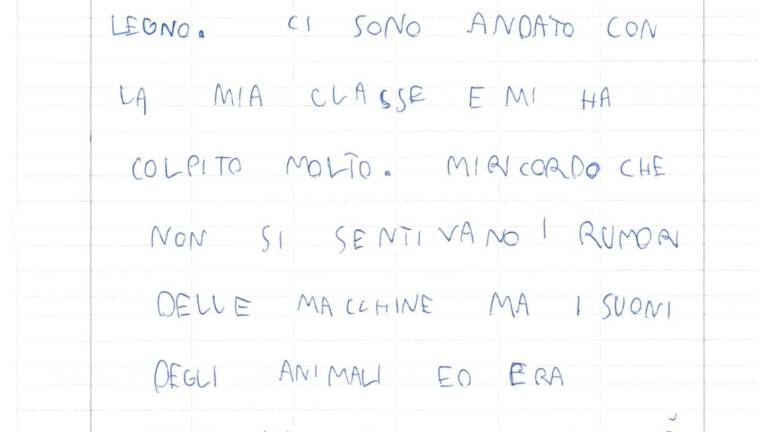 LEGNO. CI SONO ANDATO CON
LA MIA CLASSE E MI HA
COLPITO MOLTO. MI RICORDO CHE
NON SI SENTIVANO I RUMORI
DELLE MACCHINE MA I SUONI
DEGLI ANIMALI ED ERA